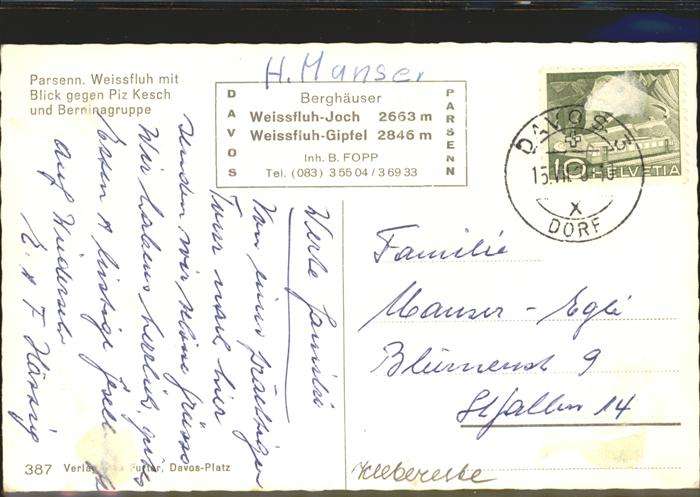 H. Manser
Parsenn. Weissfluh mit
Blick gegen Piz Kesch
und Berninagruppe
DAVOS
Berghäuser
Weissfluh-Joch 2663 m
Weissfluh-Gipfel 2846 m
Inh. B. FOPP
Tel. (083) 3 55 04 / 3 69 33
PARSENN
DAVOS 3
15.VII.
X
DORF
10 HELVETIA
Werte Familie
Von einer prächtigen
Tour
senden wir Ihnen Grüsse
Wir haben's herrlich, gutes
Essen & lustige
Auf Wiedersehn
E. & F. Hässig
Familie
Manser-Egli
Blumenst 9
St Gallen 14
387 Verlag Furter, Davos-Platz
Kleberest